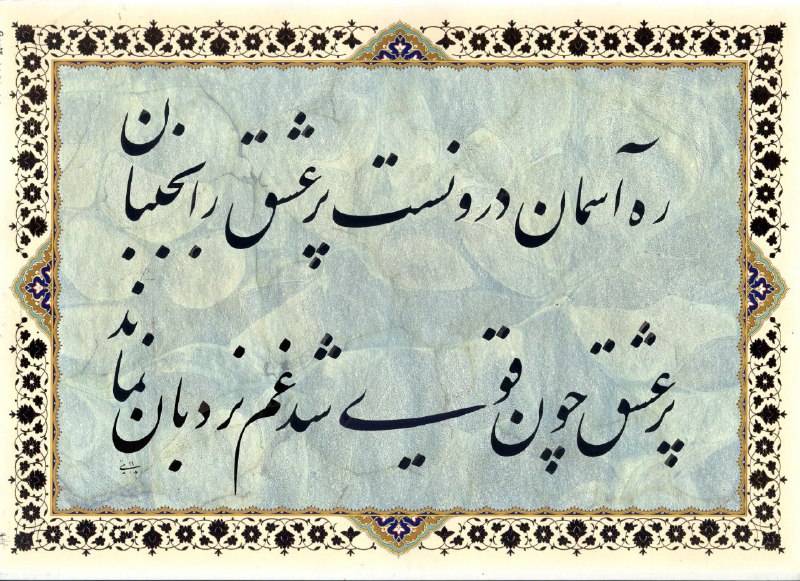 ره آسمان درونست پر عشق را بجنبان
پر عشق چون قوی شد غم نردبان نماند